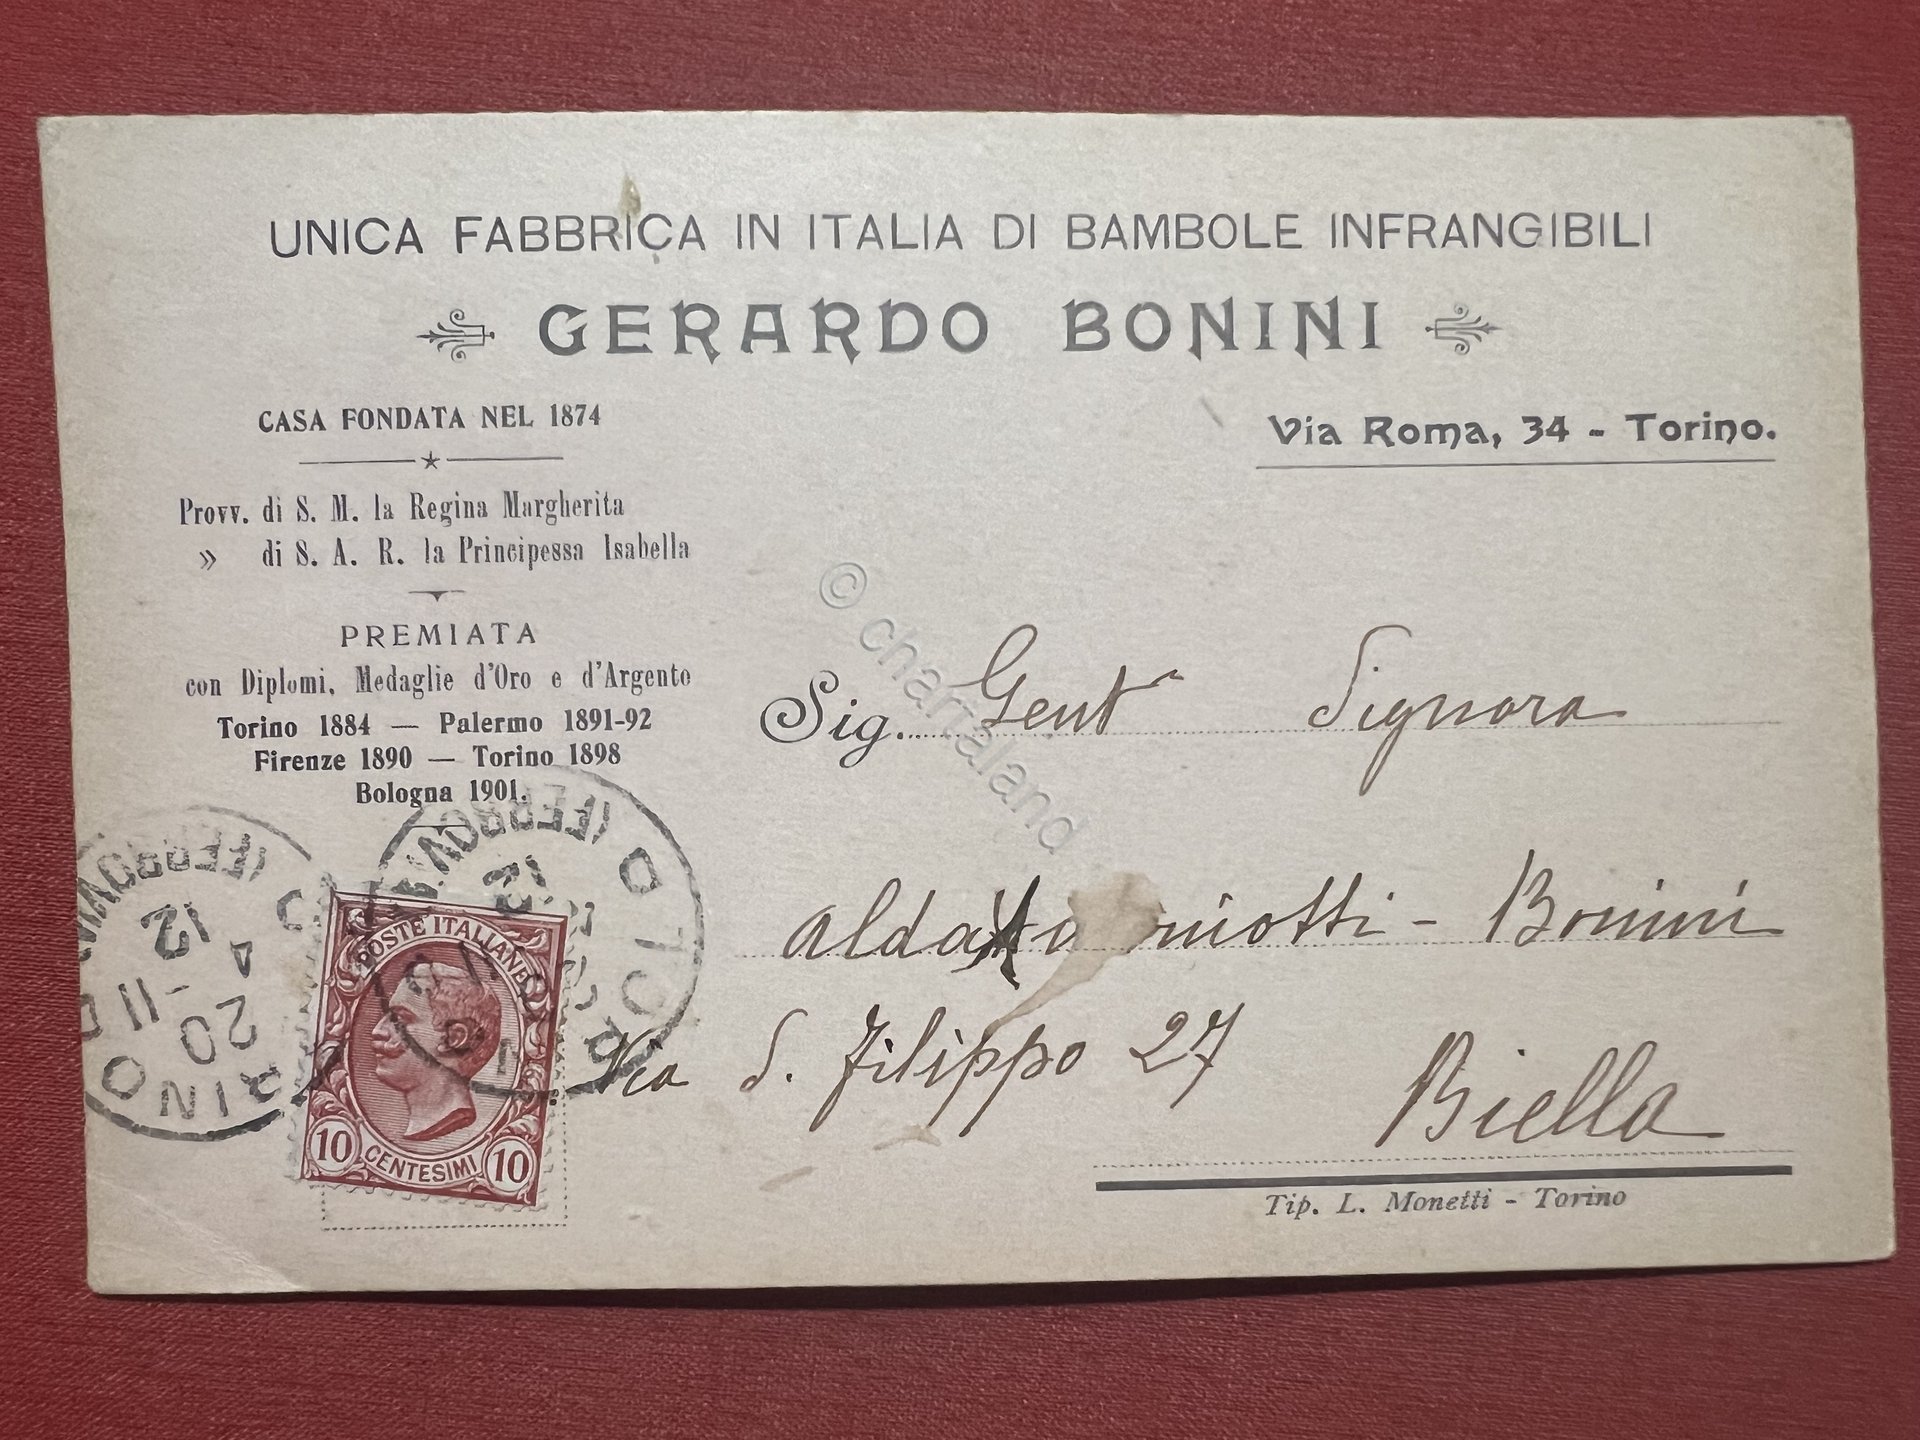 UNICA FABBRICA IN ITALIA DI BAMBOLE INFRANGIBILI
GERARDO BONINI
CASA FONDATA NEL 1874
Via Roma, 34 - Torino.
Provv. di S. M. la Regina Margherita
» di S. A. R. la Principessa Isabella
PREMIATA
con Diplomi, Medaglie d'Oro e d'Argento
Torino 1884 — Palermo 1891-92
Firenze 1890 — Torino 1898
Bologna 1901.
Sig. Gent Signora
Alda - Bonini
Via S. Filippo 27
Biella
Tip. L. Monetti - Torino
POSTE ITALIANE
10 CENTESIMI 10
TORINO
(FERROVIA)
20
11
12
TORINO
(FERROVIA)
12
© chartaland